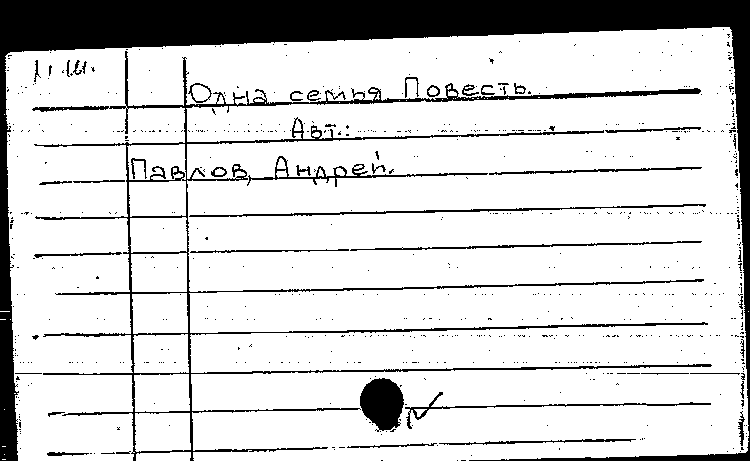 Одна семья Повесть.
Авт.:
Павлов, Андрей.